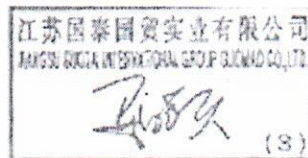 江苏国泰国贸实业有限公司
JIANGSU GUOTAI INTERNATIONAL GROUP GUOMAO CO., LTD.
(3)